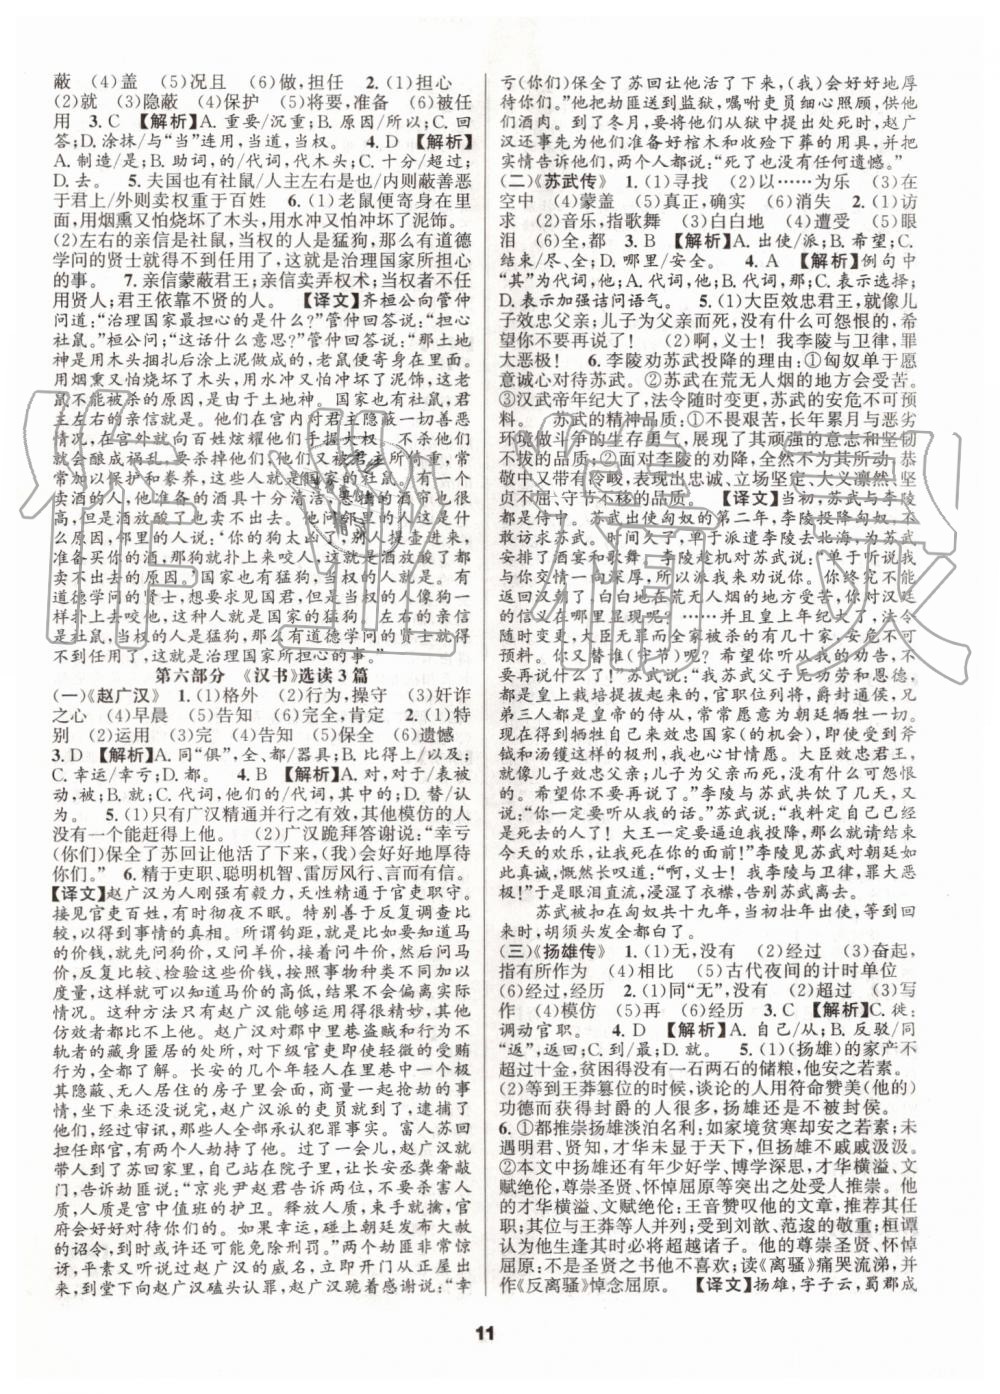 蔽　(4)盖　(5)况且　(6)做,担任　2.(1)担心
(2)就　(3)隐蔽　(4)保护　(5)将要,准备　(6)被任
用　3. C　【解析】A. 重要/沉重;B. 原因/所以;C. 回
答;D. 涂抹/与“当”连用,当道,当权。　4. D　【解析】
A. 制造/是;B. 助词,的/代词,代共市;C. 十分/超过;
D. 去。　5. 夫国也有社鼠/人主左右是也/内则蔽善恶
于君上/外则卖权重于百姓　6.(1)老鼠便寄身在里
面,用烟熏又怕烧坏了木头,用水冲又怕冲坏了泥饰。
(2)左右的亲信是社鼠,当权的人是猛狗,那么有道德
学问的贤士就得不到任用了,这就是治理国家所担心
的事。　7. 亲信蒙蔽君王;亲信卖弄权术;当权者不任
用贤人;君王依靠不贤的人。　【译文】齐桓公向管仲
问道:“治理国家最担心的是什么?”管仲回答说:“担心
社鼠。”桓公问:“这话什么意思?”管仲回答说:“那土地
神是用木头捆扎后涂上泥做成的,老鼠便寄身在里面。
用烟熏又怕烧坏了木头,用水冲又怕冲坏了泥饰,这老
鼠不能被杀的原因,是由于土地神。国家也有社鼠,君
主左右的亲信就是。他们在宫内对君主隐蔽一切善恶
情况,在宫外就向百姓炫耀他们手握大权。不杀他们
就会酿成祸乱,要杀掉他们,他们又被君主所信任,常
常加以保护和豢养,这些人就是国家的社鼠。有一个
卖酒的人,他准备的酒具十分清洁,悬挂的酒旗也很
高,但是酒放酸了也卖不出去。他问邻里的人这是什
么原因,邻里的人说:‘你的狗太凶了,别人提壶进来,
准备买你的酒,那狗就扑上来咬人,这就是酒放酸了卖
不出去的原因。’国家也有猛狗,当权的人就是。有道
德学问的贤士,想要求见国君,但是当权的人像狗一
样扑上去咬他们,这就是国家的猛狗。左右的亲信
是社鼠,当权的人是猛狗,那么有道德学问的贤士就得
不到任用了,这就是治理国家所担心的事。”
第六部分　《汉书》选读3篇
(一)《赵广汉》　1.(1)格外　(2)行为,操守　(3)奸诈
之心　(4)早晨　(5)告知　(6)完全,肯定　2.(1)特
别　(2)运用　(3)完　(4)告知　(5)保全　(6)遗憾
3. D　【解析】A. 同“俱”,全、都/器具;B. 比得上/以及;
C. 幸运/幸亏;D. 都。　4. B　【解析】A. 对,对于/表被
动,被;B. 就;C. 代词,他们的/代词,其中的;D. 替/认
为。　5.(1)只有广汉精通并行之有效,其他模仿的人
没有一个能赶得上他。　(2)广汉跪拜答谢说:“幸亏
(你们)保全了苏回让他活了下来,(我)会好好地厚待
你们。”　6. 精于吏职、聪明机智、雷厉风行、言而有信。
【译文】赵广汉为人刚强有毅力,天性精通于官吏职守。
接见官吏百姓,有时彻夜不眠。特别善于反复调查比
较,以得到事情的真相。所谓钩距,就是比如要知道马
的价钱,就先问狗价,又问羊价,接着问牛价,然后问马
价,反复比较、检验这些价钱,因其种类不同而加以
度量,这样就可以知道马价的高低,结果不会偏离真实
情况。这种方法只有赵广汉能够运用得很精妙,其他
仿效者都比不上他。赵广汉对郡中里巷盗贼和行为不
轨者的藏身匿居的处所,以及对官吏即使轻微的受贿
行为,都知道。长安的几个年轻人在里巷中一极其
隐蔽、无人居住的房子里会面,商量一起抢劫的事
情,坐下来没说完,赵广汉派的吏员就到了,逮捕了
他们法办,这些人全部承认犯罪事实。富人苏回
担任郎官,有两个人劫持了他。过了一会儿,赵广汉就
带人到了苏回家里,自己站在院子里,让长安丞龚奢敲
堂门,告诉劫匪说:“京兆尹赵君告诉两位,不要杀害人
质,人质是宫中值班的护卫。释放人质,束手就擒,官
府会好好对待你们的。如果幸运,碰上朝廷发布大赦
的诏令,到时或许还可能会免除刑罚。”两劫匪感到惊
讶,平素又听说过赵广汉的威名,立即打开门从正屋出
来,走到堂下给赵广汉磕头认罪,赵广汉跪着感谢说:“幸
亏(你们)保全了苏回让他活了下来,(我)会好好地厚
待你们。”他把劫匪送到监狱,嘱咐吏员细心照顾,供他
们酒肉。到了冬月,要将他们从狱中提出处死时,赵广
汉还事先为他们准备好棺木和收殓下葬的用具,并把
实情告诉他们,两个人都说:“死了也没有任何遗憾。”
(二)《苏武传》　1.(1)寻找　(2)以……为乐　(3)在
空中　(4)蒙盖　(5)真正,确实　(6)消失　2.(1)访
求　(2)音乐,指歌舞　(3)白白地　(4)遭受　(5)眼
泪　(6)全,都　3. B　【解析】A. 出使/派;B. 希望;C.
结束/尽、全;D. 哪里/安全。　4. A　【解析】例句中
“其”为代词,他;A. 代词,他;B. 代词,那;C. 表示选择;
D. 表示加强诘问语气。　5.(1)大臣效忠君王,就像儿
子效忠父亲;儿子为父亲而死,没有什么可怨恨的,希
望你不要再说了!　(2)啊,义士!我李陵与卫律,罪
大恶极!　6. 李陵劝苏武投降的理由:①匈奴单于愿
意诚心对待苏武。②苏武在荒无人烟的地方会受苦。
③汉武帝年纪大了,法令随时变更,苏武的安危不可预
料。　苏武的精神品质:①不畏艰苦,长年累月与恶劣
环境做斗争的生存勇气,展现了其顽强的意志和坚韧
不拔的品质;②面对李陵的劝降,全文不激不怒,恭
敬中又带有冷峻,表现出忠诚、立场坚定、大义凛然、坚
贞不屈、守节不移的品质。　【译文】当初,苏武与李陵
都是侍中。苏武出使匈奴的第二年,李陵投降匈奴,不
敢访求苏武。时间久了,单于派遣李陵去北海,为苏武
安排了酒宴和歌舞。李陵趁机对苏武说:“单于听说
我与你交情一向深厚,所以派我来劝说你。你终究不能
返回汉朝了,白白地在荒无人烟的地方受苦,你对汉廷
的信义又在哪里显现呢?……并且皇上年纪大了,法令
随时变更,大臣无罪而全家被杀的有几十家,安危不可
预料。你又替谁(守节)呢?”苏武说:“我苏武父子无功
劳和恩德,都是皇帝栽培提拔起来的,官职升到列将,爵位封为通侯,兄
弟三人都是皇帝的侍从,常常愿意为朝廷牺牲一切。
现在得到牺牲自己来效忠国家(的机会),即使受到斧
钺和汤镬这样的极刑,我也心甘情愿。大臣效忠君王,
就像儿子效忠父亲;儿子为父亲而死,没有什么可怨恨
的。希望你不要再说了!”李陵与苏武共饮了几天,又
说:“你一定要听从我的话。”苏武说:“我料定自己已经
是死去的人了!大王一定要逼迫我投降,那么就请结束
今天的欢乐,让我死在你的面前!”李陵见苏武对朝廷如
此真诚,慨然长叹道:“啊,义士!我李陵与卫律,罪大恶
极!”于是眼泪直流,浸湿了衣襟,告别苏武离去。
苏武被扣在匈奴共十九年,当初壮年出使,等到回
来时,胡须头发全都白了。
(三)《扬雄传》　1.(1)无,没有　(2)经过　(3)奋起,
指有所作为　(4)相比　(5)古代夜间的计时单位
(6)经过,经历　2.(1)同“无”,没有　(2)超过　(3)写
作　(4)模仿　(5)再　(6)经历　3. C　【解析】C. 徙:
调动官职。　4. D　【解析】A. 自己/从;B. 反驳/同
“返”,返回;C. 到/最;D. 就。　5.(1)(扬雄)的家产不
超过十金,贫困得没有一石两石的储粮,他安之若素。
(2)等到王莽篡位的时候,谈论的人用符命赞美(他的)
功德而获得封爵的人很多,扬雄还是不被封侯。
6.①都推崇扬雄淡泊名利;如家境贫寒却安之若素;未
遇明君、贤知,才华未显于天下,但扬雄不戚戚汲汲。
②本文中扬雄还有年少好学、博学深思,才华横溢、文
赋绝伦,尊崇圣贤、怀悼屈原等突出之处受人推崇。他
的才华横溢、文赋绝伦:王音赞叹他的文章,推荐其任
职;其位与王莽等人并列;受到刘歆、范逡的敬重;桓谭
认为他生逢其时必将超越诸子。他的尊崇圣贤、怀悼
屈原:不是圣贤之书他不喜欢;读《离骚》痛哭流涕,并
作《反离骚》悼念屈原。　【译文】扬雄,字子云,蜀郡成
11
作业精灵